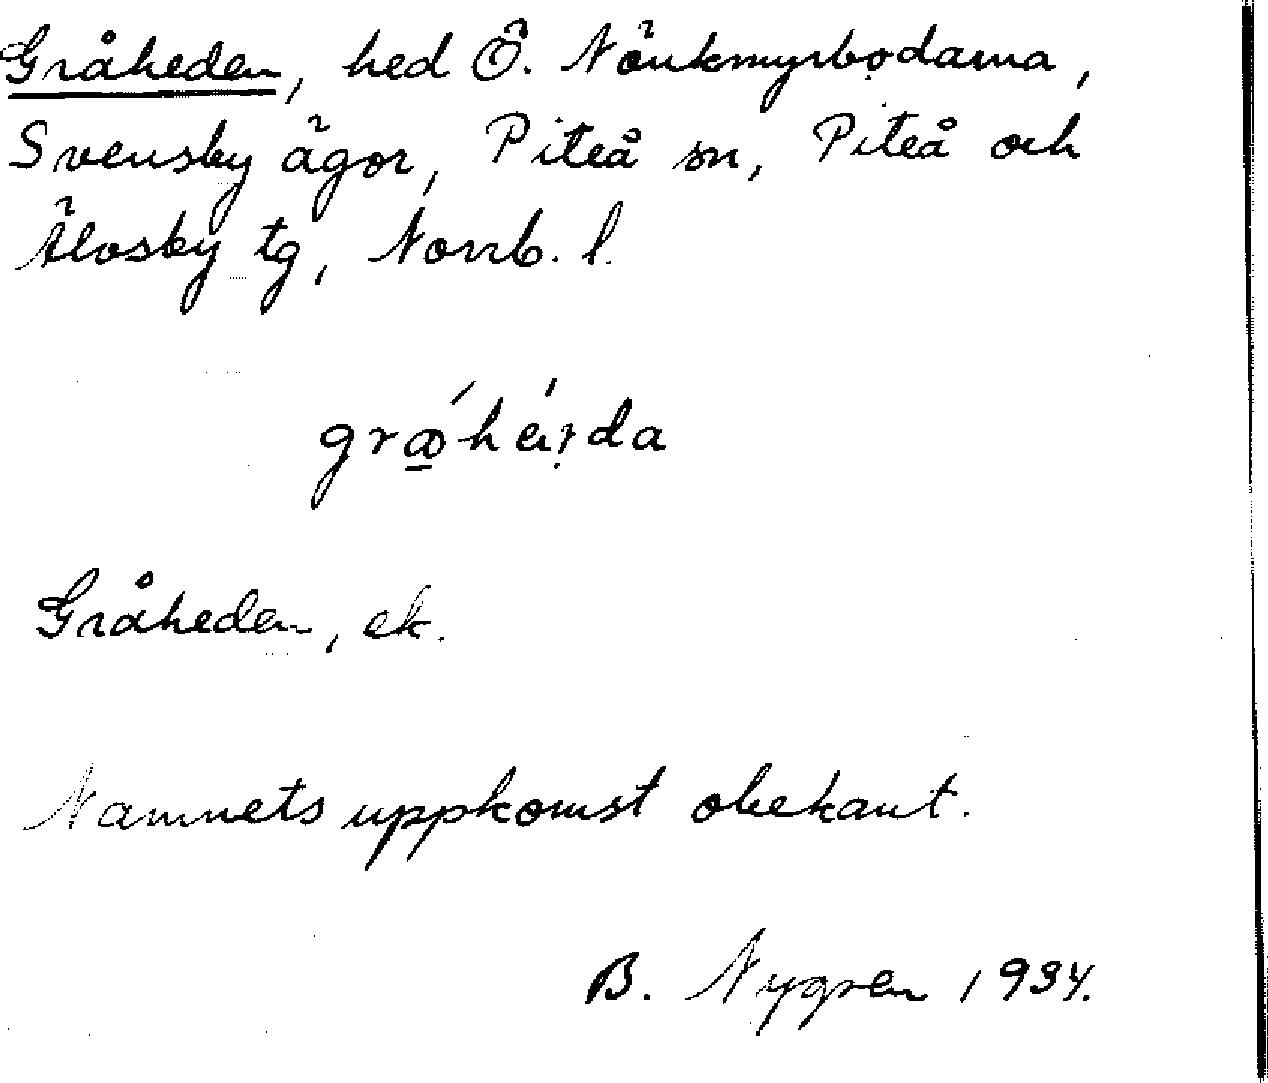 Gråheden, hed Ö. Nönkmyrbodarna,
Svensby ägor, Piteå sn, Piteå och
Älvsby tg, Norrb. l.
Gråheden, ek.
Namnets uppkomst obekant.
B. Nygren 1934.